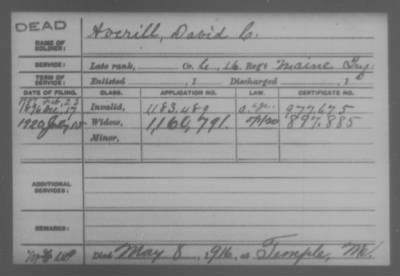 DEAD
NAME OF SOLDIER: Averill, David C.
SERVICE: Late rank, Co. C, 16 Reg't Maine Inf.
TERM OF SERVICE: Enlisted , 1 Discharged , 1
DATE OF FILING. CLASS. APPLICATION NO. LAW. CERTIFICATE NO.
Invalid, 1183.489 977.675
1920 July 13 Widow, 1,160,791. 897.885
Minor,
ADDITIONAL SERVICES:
REMARKS:
Died May 8, 1916, at Temple, Me.